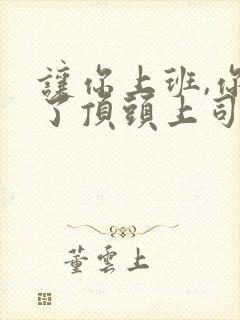 讓你上班,你
了頂頭上司
董雲上